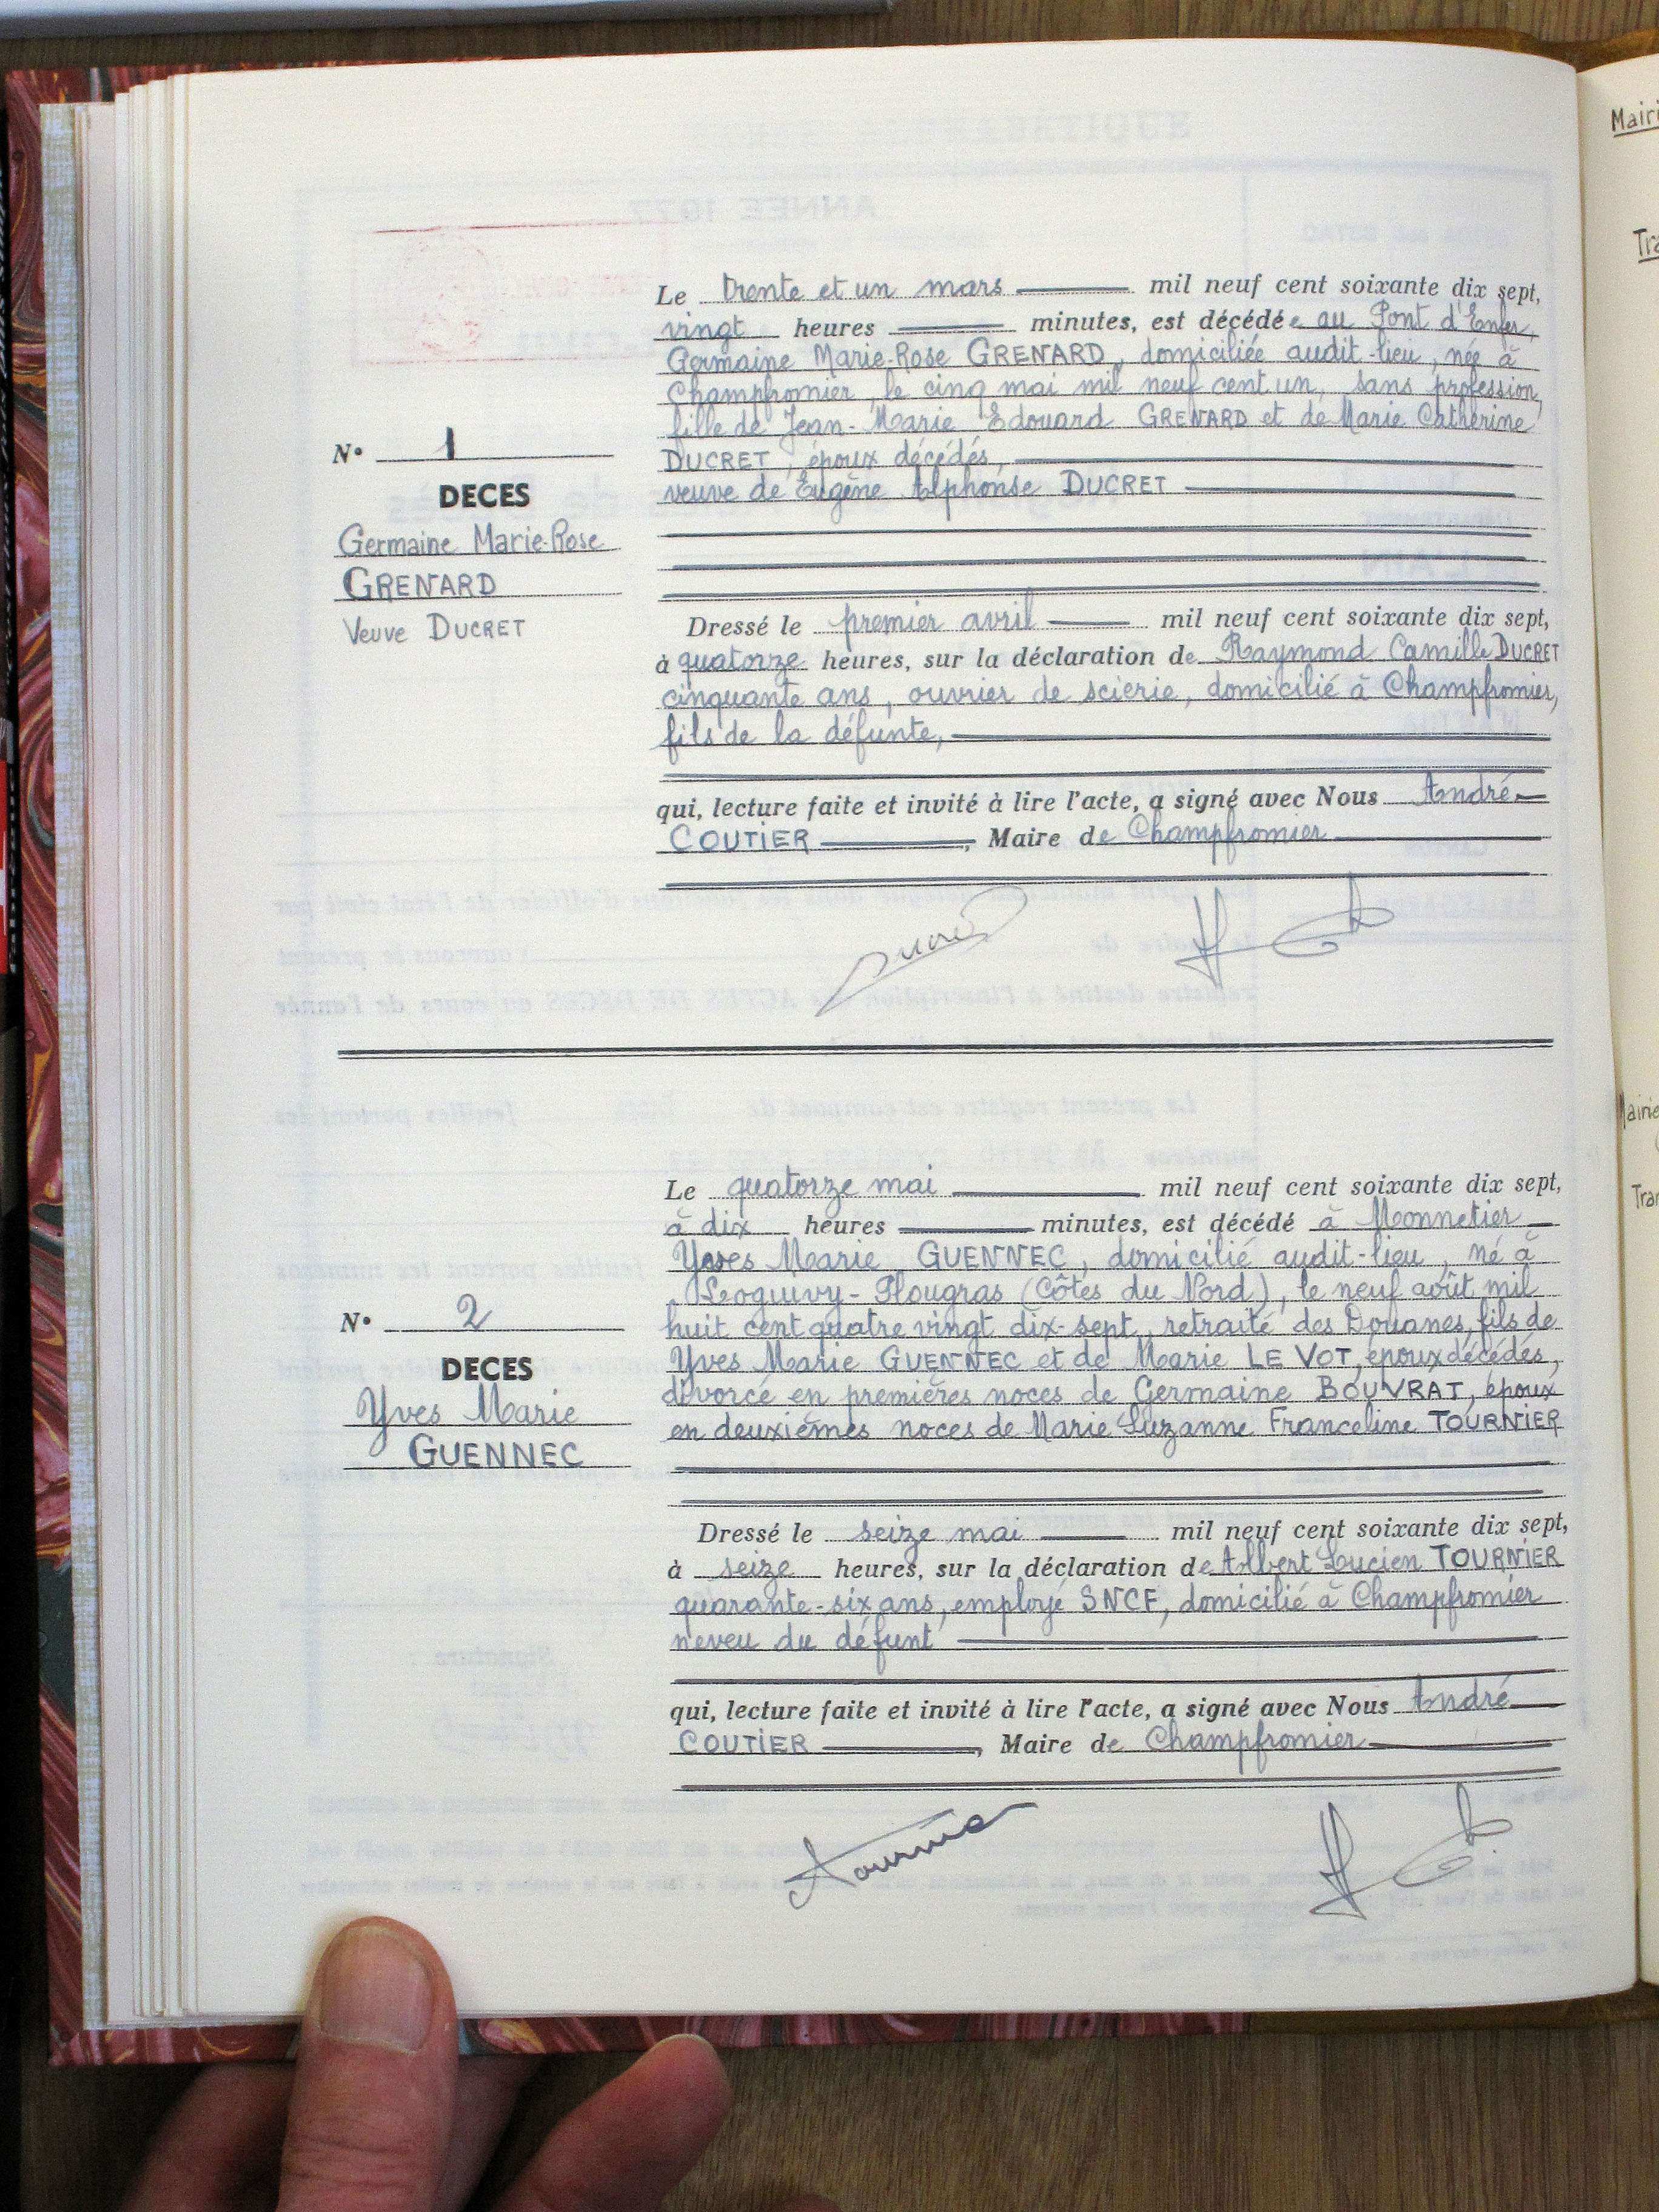 Le trente et un mars mil neuf cent soixante dix sept,
vingt heures minutes, est décédée au Pont d'Enfer,
Germaine Marie-Rose GRENARD, domiciliée audit-lieu, née à
Champfromier, le cinq mai mil neuf cent un, sans profession,
fille de Jean-Marie Edouard GRENARD et de Marie Catherine
DUCRET, époux décédés,
veuve de Eugène Alphonse DUCRET
N° 1
DECES
Germaine Marie-Rose
GRENARD
Veuve DUCRET
Dressé le premier avril mil neuf cent soixante dix sept,
à quatorze heures, sur la déclaration de Raymond Camille DUCRET
cinquante ans, ouvrier de scierie, domicilié à Champfromier,
fils de la défunte,
qui, lecture faite et invité à lire l'acte, a signé avec Nous André
COUTIER, Maire de Champfromier
Ducret
Le quatorze mai mil neuf cent soixante dix sept,
à dix heures minutes, est décédé à Monnetier
Yves Marie GUENNEC, domicilié audit-lieu, né à
Loguivy-Plougras (Côtes du Nord), le neuf août mil
huit cent quatre vingt dix-sept, retraité des Douanes, fils de
Yves Marie GUENNEC et de Marie LE VOT, époux décédés,
divorcé en premières noces de Germaine BOUVRAT, époux
en deuxièmes noces de Marie Suzanne Franceline TOURNIER
N° 2
DECES
Yves Marie
GUENNEC
Dressé le seize mai mil neuf cent soixante dix sept,
à seize heures, sur la déclaration de Albert Lucien TOURNIER
quarante-six ans, employé SNCF, domicilié à Champfromier
neveu du défunt
qui, lecture faite et invité à lire l'acte, a signé avec Nous André
COUTIER, Maire de Champfromier
Tournier